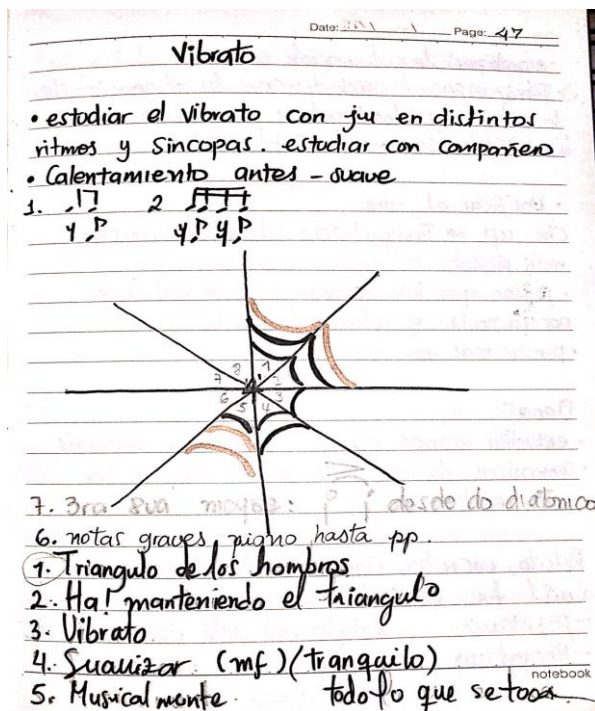 Date: Page: 47
Vibrato
• estudiar el vibrato con ju en distintos
ritmos y sincopas. estudiar con compañero
• Calentamiento antes - suave
1. 2
8 1
7 2
6 3
5 4
7. 3ra 8va mayor: desde do diatonico
6. notas graves piano hasta pp.
1. Triangulo de los hombros
2. Ha! manteniendo el triangulo
3. Vibrato
4. Suavizar (mf) (tranquilo)
notebook
5. Musicalmente todo lo que se toca